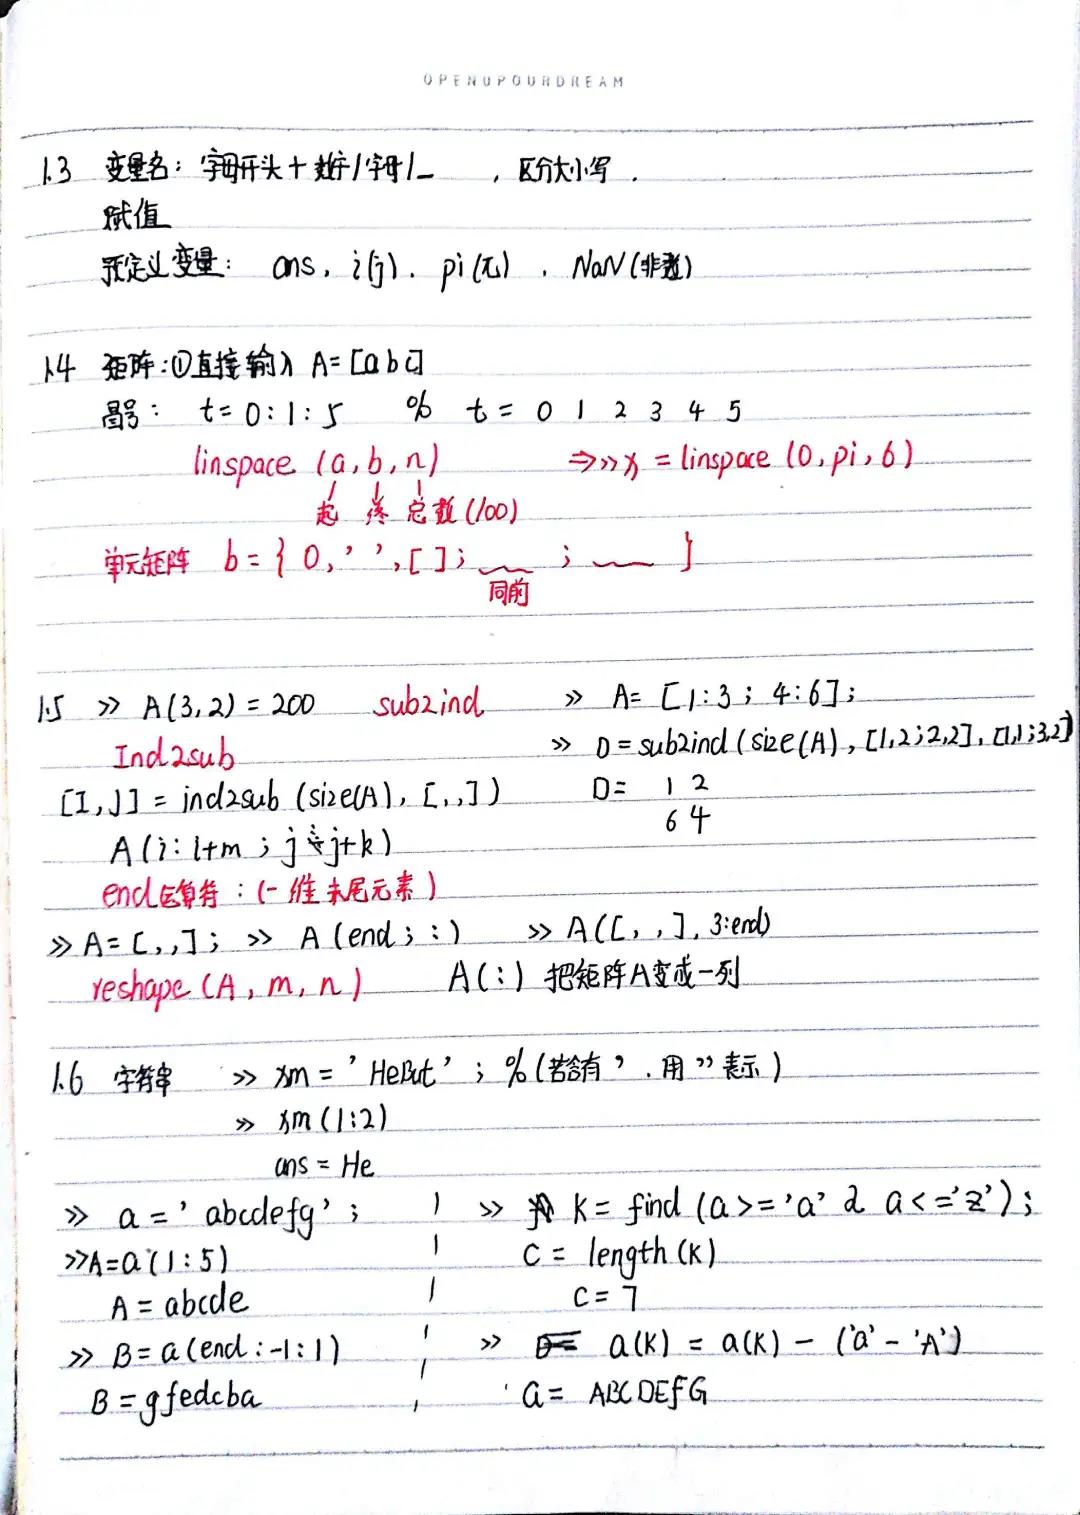 OPENUPOURDREAM
1.3 变量名：字母开头＋数字/字母/_ ，区分大小写.
赋值
预定义变量： ans, i(j). pi(π) . NaN(非数)
1.4 矩阵:①直接输入 A=[a b c]
冒号： t= 0:1:5 % t = 0 1 2 3 4 5
linspace (a, b, n) ⇒>> x = linspace (0, pi, 6)
起 终 总数(100)
单元矩阵 b = { 0, ' ', [ ]; ; }
同前
1.5 >> A(3,2) = 200 sub2ind >> A= [1:3 ; 4:6];
Ind2sub >> D = sub2ind (size(A), [1,2;2,2], [1,1;3,2])
[I,J] = ind2sub (size(A), [,,]) D= 1 2
6 4
A(i: i+m ; j : j+k)
end运算符：(一维末尾元素)
>> A= [,,]; >> A (end ; :) >> A([, ,], 3:end)
reshape (A, m, n) A(:) 把矩阵A变成一列
1.6 字符串 >> xm = ' HeBut ' ; %(若含有 ' . 用 '' 表示)
>> xm (1:2)
ans = He
>> a = ' abcdefg' ; >> K = find (a >= 'a' & a <= 'z');
>>A=a(1:5) C = length (K)
A = abcde C = 7
>> B= a(end:-1:1) >> a(K) = a(K) - ('a' - 'A')
B = gfedcba a = ABCDEfG